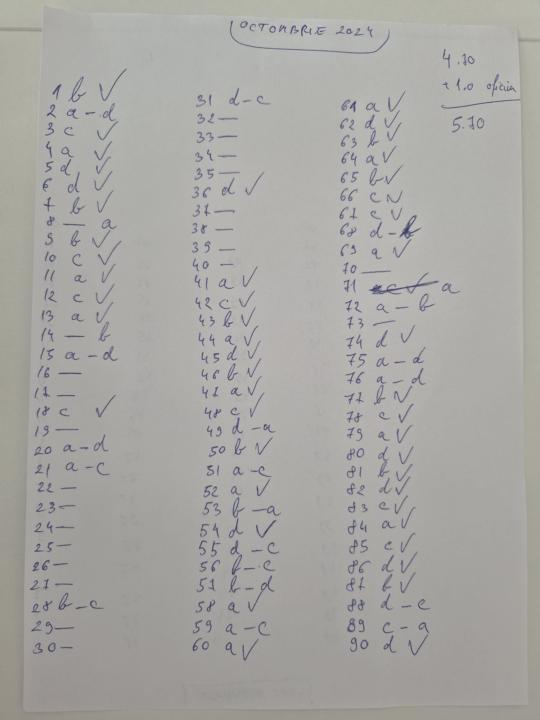 OCTOMBRIE 2024
4.70
+1.0 oficiu
5.70
1 b ✓
2 a-d
3 c ✓
4 a ✓
5 d ✓
6 d ✓
7 b ✓
8 — a
9 b ✓
10 c ✓
11 a ✓
12 c ✓
13 a ✓
14 — b
15 a-d
16 —
17 —
18 c ✓
19 —
20 a-d
21 a-c
22 —
23 —
24 —
25 —
26 —
27 —
28 b-c
29 —
30 —
31 d-c
32 —
33 —
34 —
35 —
36 d ✓
37 —
38 —
39 —
40 —
41 a ✓
42 c ✓
43 b ✓
44 a ✓
45 d ✓
46 b ✓
47 a ✓
48 c ✓
49 d-a
50 b ✓
51 a-c
52 a ✓
53 b-a
54 d ✓
55 d-c
56 b-c
57 b-d
58 a ✓
59 a-c
60 a ✓
61 a ✓
62 d ✓
63 b ✓
64 a ✓
65 b ✓
66 c ✓
67 c ✓
68 d-b
69 a ✓
70 —
71 c ✓ a
72 a-b
73 —
74 d ✓
75 a-d
76 a-d
77 b ✓
78 c ✓
79 a ✓
80 d ✓
81 b ✓
82 d ✓
83 c ✓
84 a ✓
85 c ✓
86 d ✓
87 b ✓
88 d-c
89 c-a
90 d ✓